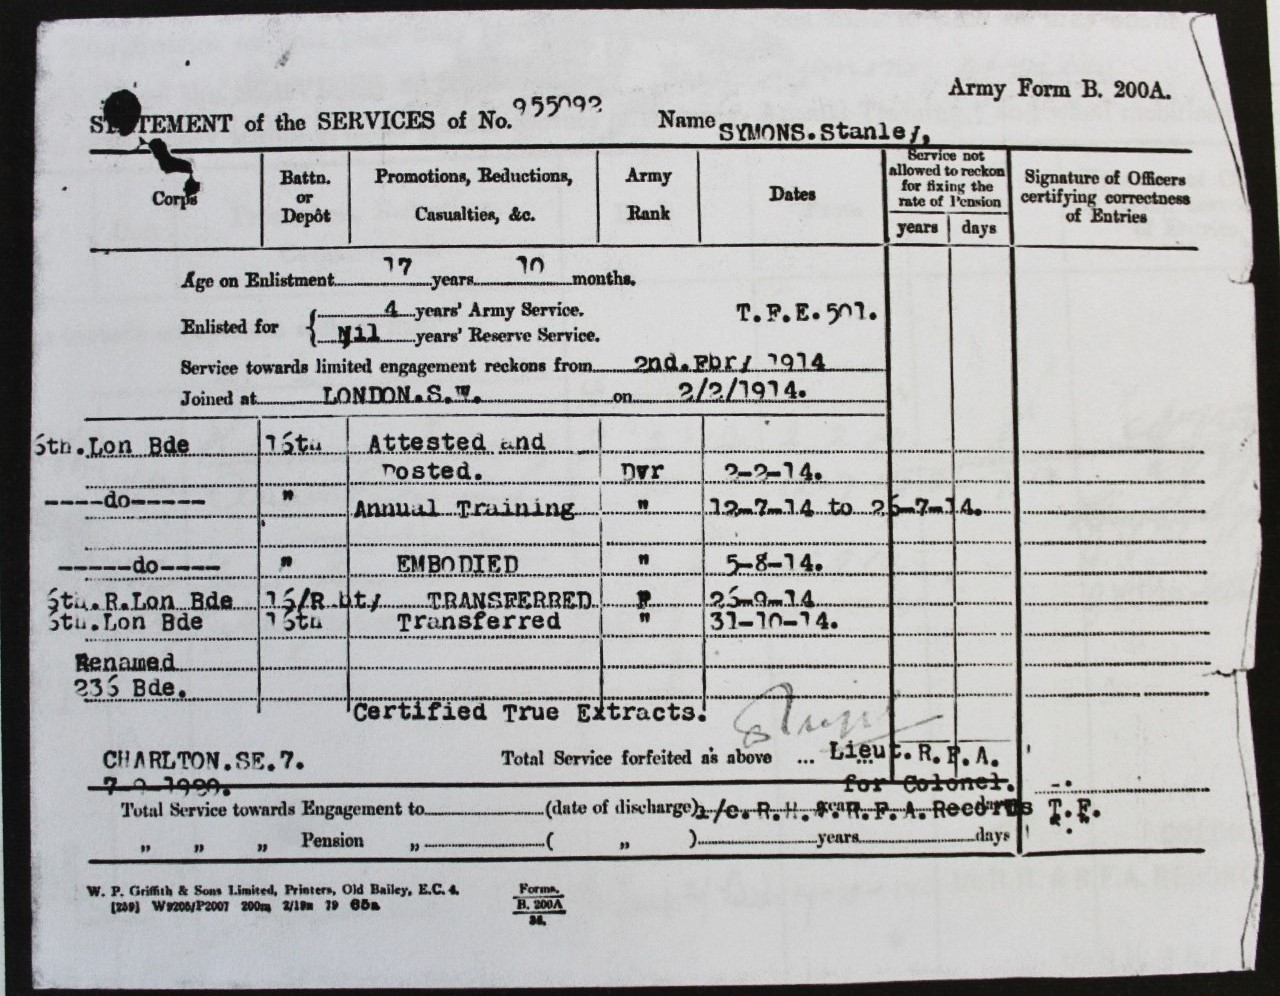 Army Form B. 200A.
STATEMENT of the SERVICES of No. 955092 Name SYMONS.Stanley,
Corps
Battn. or Depôt
Promotions, Reductions, Casualties, &c.
Army Rank
Dates
Service not allowed to reckon for fixing the rate of Pension
years days
Signature of Officers certifying correctness of Entries
Age on Enlistment 17 years 10 months.
Enlisted for { 4 years' Army Service. T.F.E.501.
Nil years' Reserve Service.
Service towards limited engagement reckons from 2nd.Fbry 1914
Joined at LONDON.S.W. on 2/2/1914.
6th.Lon Bde 16th Attested and
Posted. Dvr 2-2-14.
----do----- " Annual Training " 12-7-14 to 26-7-14.
-----do---- " EMBODIED " 5-8-14.
6th.R.Lon Bde 16/R bty TRANSFERRED 26-9-14
6th.Lon Bde 16th Transferred " 31-10-14.
Renamed
236 Bde.
Certified True Extracts.
CHARLTON.SE.7. Total Service forfeited as above ... Lieut.R.F.A.
for Colonel.
Total Service towards Engagement to (date of discharge) i/c.R.H. & R.F.A.Records T.F.
" " " Pension " ( " ) years days
W. P. Griffith & Sons Limited, Printers, Old Bailey, E.C. 4.
[259] W9205/P2007 200m 2/19m 79 65a
Forms.
B. 200A